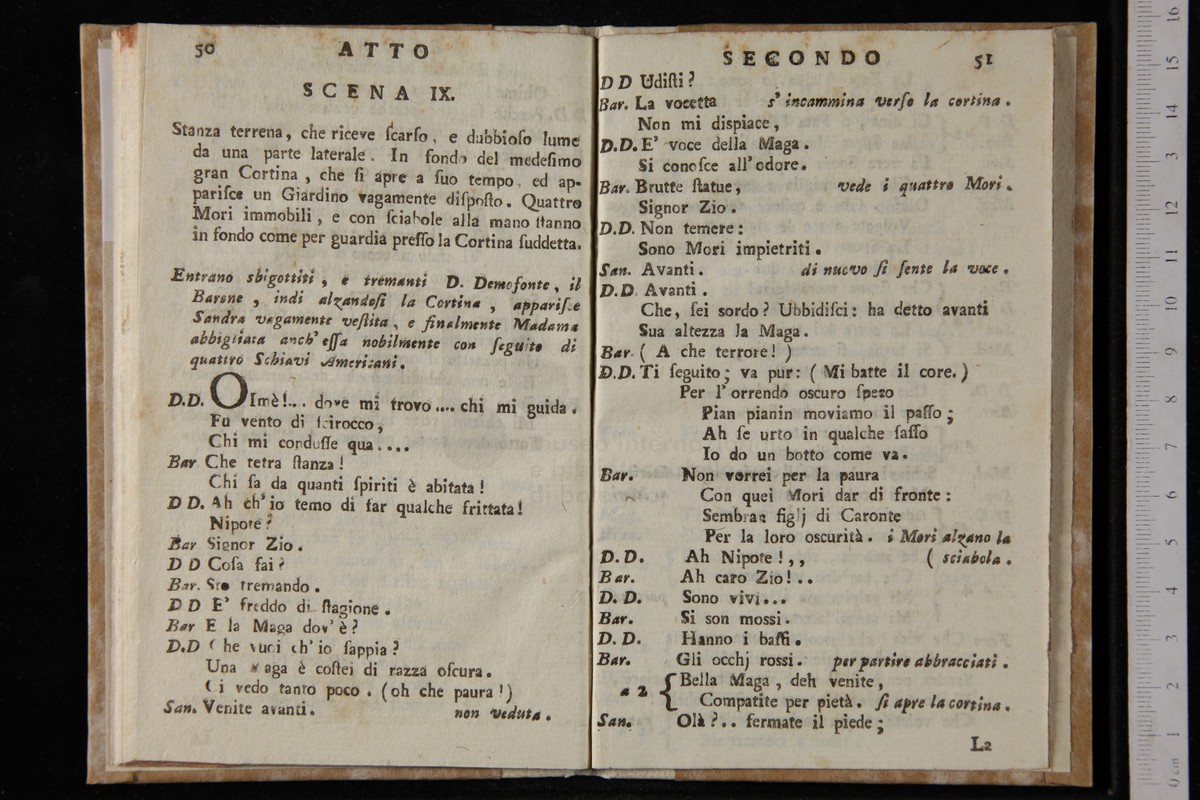 50 ATTO
SCENA IX.
Stanza terrena, che riceve ſcarſo, e dubbioſo lume
da una parte laterale. In fondo del medeſimo
gran Cortina, che ſi apre a ſuo tempo, ed ap-
pariſce un Giardino vagamente diſpoſto. Quattro
Mori immobili, e con ſciabole alla mano ſtanno
in fondo come per guardia preſſo la Cortina ſuddetta.
Entrano sbigottiti, e tremanti D. Demofonte, il
Barone, indi alzandoſi la Cortina, appariſce
Sandra vagamente veſtita, e finalmente Madama
abbigliata anch' eſſa nobilmente con ſeguito di
quattro Schiavi Americani.
D.D. Oimè!... dove mi trovo.... chi mi guida.
Fu vento di ſcirocco,
Chi mi conduſſe qua....
Bar Che tetra ſtanza!
Chi ſa da quanti ſpiriti è abitata!
D D. Ah ch' io temo di far qualche frittata!
Nipote?
Bar Signor Zio.
D D Coſa fai?
Bar. Sto tremando.
D D E' freddo di ſtagione.
Bar E la Maga dov' è?
D.D Che vuoi ch' io ſappia?
Una Maga è coſtei di razza oſcura.
Ci vedo tanto poco. (oh che paura!)
San. Venite avanti. non veduta.
SECONDO 51
D D Udiſti?
Bar. La vocetta s' incammina verſo la cortina.
Non mi dispiace,
D.D. E' voce della Maga.
Si conoſce all' odore.
Bar. Brutte ſtatue, vede i quattro Mori.
Signor Zio.
D.D. Non temere:
Sono Mori impietriti.
San. Avanti. di nuovo ſi ſente la voce.
D.D. Avanti.
Che, ſei sordo? Ubbidiſci: ha detto avanti
Sua altezza la Maga.
Bar. ( A che terrore! )
D.D. Ti ſeguito; va pur: ( Mi batte il core.)
Per l' orrendo oscuro ſpezo
Pian pianin moviamo il paſſo;
Ah ſe urto in qualche ſaſſo
Io do un botto come va.
Bar. Non vorrei per la paura
Con quei Mori dar di fronte:
Sembran figlj di Caronte
Per la loro oscurità. i Mori alzano la
D.D. Ah Nipote!,, ( sciabola.
Bar. Ah caro Zio!..
D. D. Sono vivi...
Bar. Si son mossi.
D. D. Hanno i baffi.
Bar. Gli occhj rossi. per partire abbracciati.
a 2 { Bella Maga, deh venite,
Compatite per pietà. ſi apre la cortina.
San. Olà?.. fermate il piede;
L2